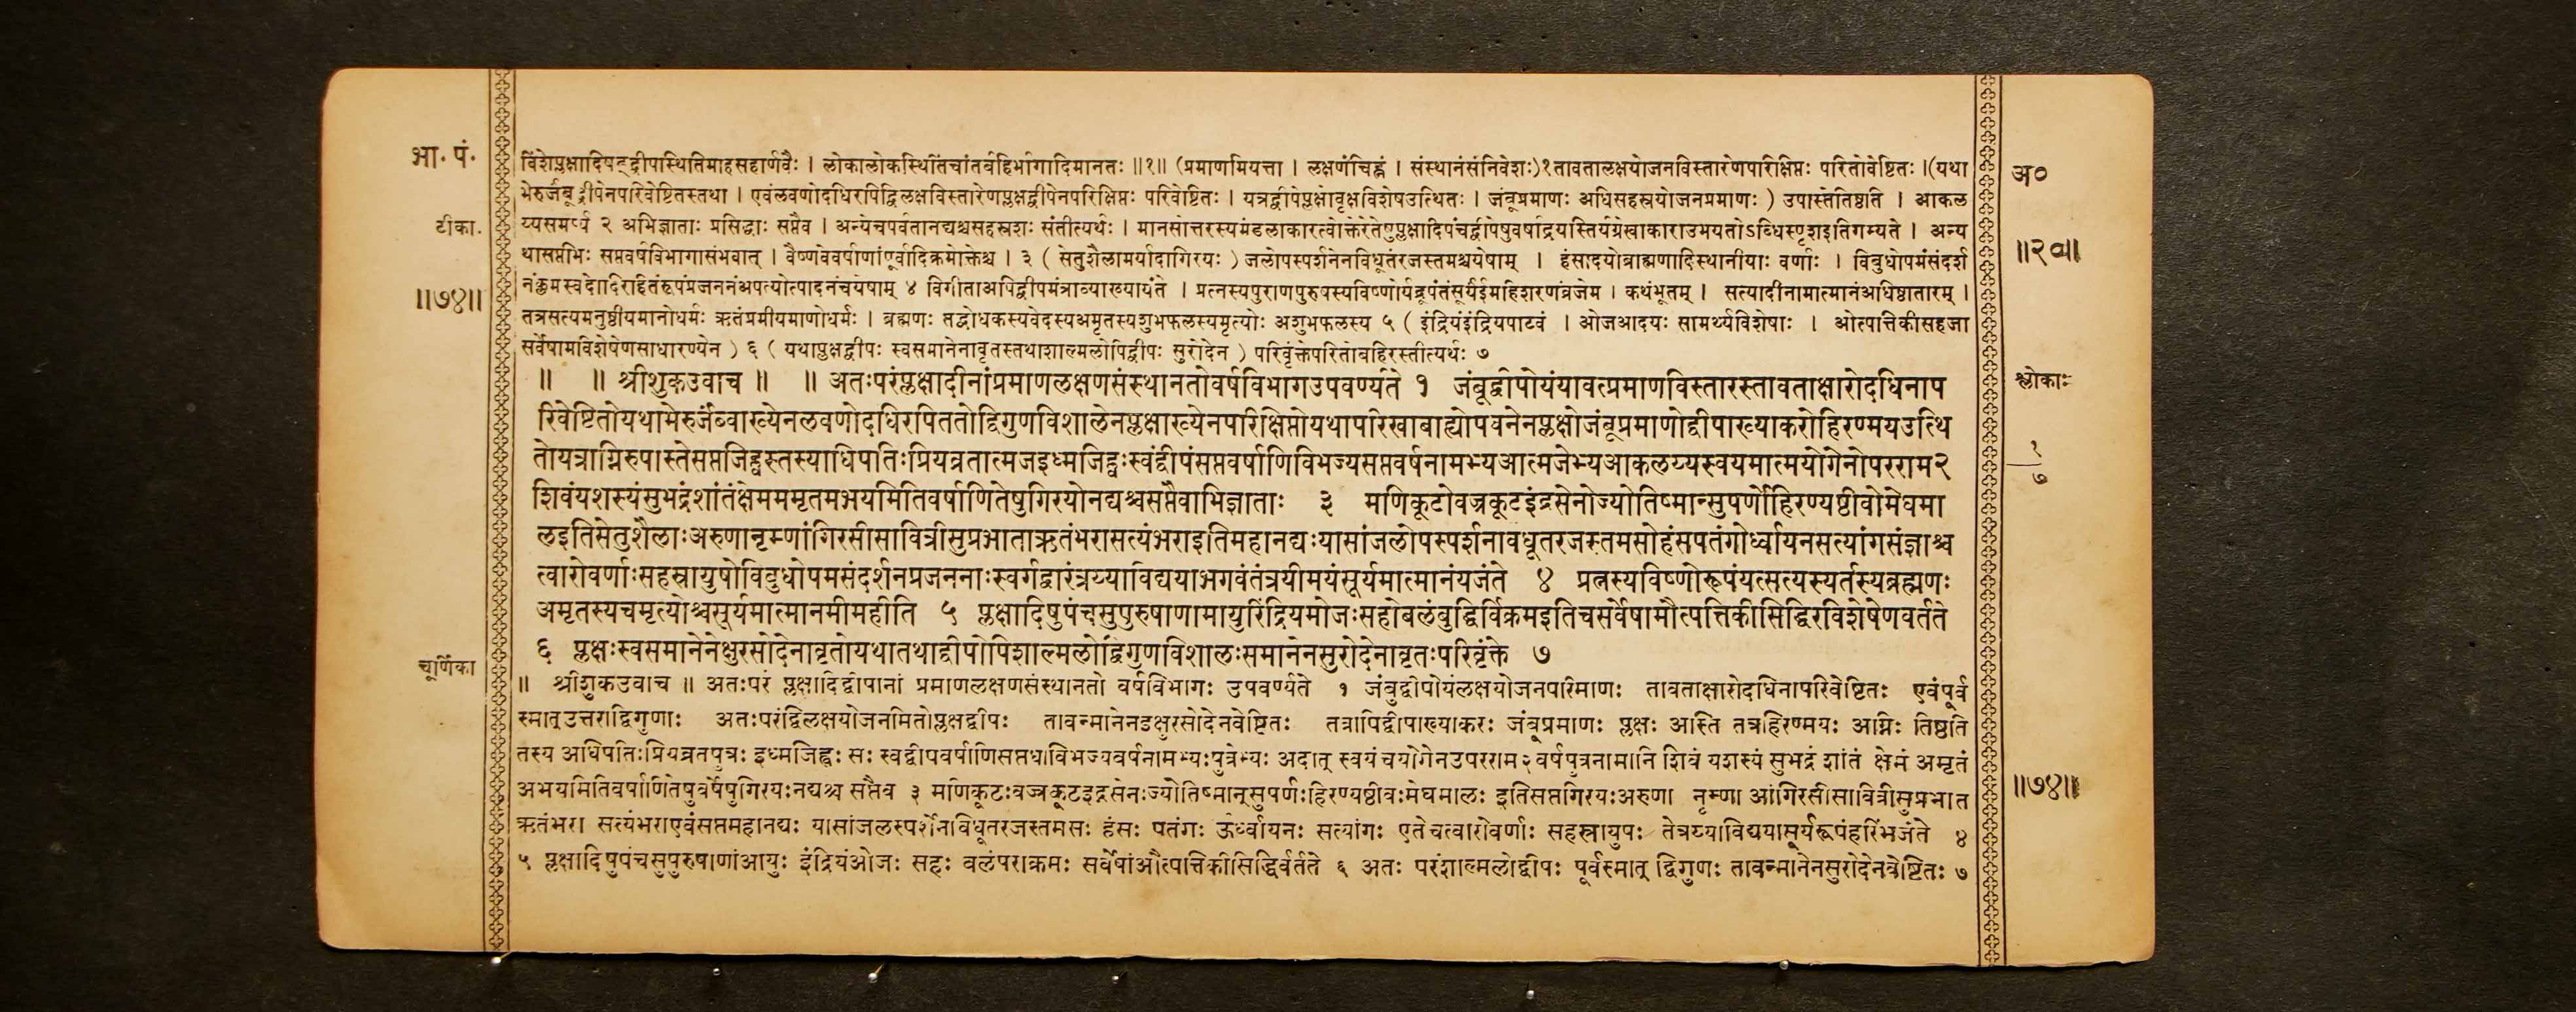 भा. पं.
टीका.
॥७४॥
चूर्णिका
विंशेप्लक्षादिषट्द्वीपस्थितिमाहसहार्णवैः । लोकालोकस्थितिंचांतर्बहिर्भागादिमानतः ॥१॥ (प्रमाणमियत्ता । लक्षणंचिह्नं । संस्थानंसंनिवेशः)१तावतालक्षयोजनविस्तारेणपरिक्षिप्तः परितोवेष्टितः ।(यथा
मेरुर्जंबूद्वीपेनपरिवेष्टितस्तथा । एवंलवणोदधिरपिद्विलक्षविस्तारेणप्लक्षद्वीपेनपरिक्षिप्तः परिवेष्टितः । यत्रद्वीपेप्लक्षोवृक्षविशेषउत्थितः । जंबूप्रमाणः अधिसहस्रयोजनप्रमाणः ) उपास्तेतिष्ठति । आकल
य्यसमर्प्य २ अभिज्ञाताः प्रसिद्धाः सप्तैव । अन्येचपर्वतानद्यश्चसहस्रशः संतीत्यर्थः । मानसोत्तरस्यमंडलाकारत्वोक्तेरेतेषुप्लक्षादिपंचर्द्वीपेषुवर्षाद्रयस्तिर्यग्रेखाकाराउभयतोऽब्धिस्पृशइतिगम्यते । अन्य
थासप्तभिः सप्तवर्षविभागासंभवात् । वैष्णवेववर्षाणांपूर्वादिक्रमोक्तेश्च । ३ ( सेतुशैलामर्यादागिरयः ) जलोपस्पर्शनेनविधूतंरजस्तमश्चयेषाम् । हंसादयोब्राह्मणादिस्थानीयाः वर्णाः । विबुधोपमंसंदर्श
नंक्लमस्वदेादिरहितंरूपंप्रजननंअपत्योत्पादनंचयेषाम् ४ विगीताअपिद्वीपमंत्राव्याख्यायंते । प्रत्नस्यपुराणपुरुषस्यविष्णोर्यद्रूपंतंसूर्यंईमहिशरणंव्रजेम । कथंभूतम् । सत्यादीनामात्मानंअधिष्ठातारम् ।
तत्रसत्यमनुष्ठीयमानोधर्मः ऋतंप्रमीयमाणोधर्मः । ब्रह्मणः तद्बोधकस्यवेदस्यअमृतस्यशुभफलस्यमृत्योः अशुभफलस्य ५ ( इंद्रियंइंद्रियपाटवं । ओजआदयः सामर्थ्यविशेषाः । औत्पत्तिकीसहजा
सर्वेषामविशेषेणसाधारण्येन ) ६ ( यथाप्लक्षद्वीपः स्वसमानेनावृतस्तथाशाल्मलोपिद्वीपः सुरोदेन ) परिवृंक्तेपरितोबहिरस्तीत्यर्थः ७
॥ ॥ श्रीशुकउवाच ॥ ॥ अतःपरंप्लक्षादीनांप्रमाणलक्षणसंस्थानतोवर्षविभागउपवर्ण्यते १ जंबूद्वीपोयंयावत्प्रमाणविस्तारस्तावताक्षारोदधिनाप
रिवेष्टितोयथामेरुर्जंब्वाख्येनलवणोदधिरपिततोद्विगुणविशालेनप्लक्षाख्येनपरिक्षिप्तोयथापरिखाबाह्योपवनेनप्लक्षोजंबूप्रमाणोद्वीपाख्याकरोहिरण्मयउत्थि
तोयत्राग्निरुपास्तेसप्तजिह्वस्तस्याधिपतिःप्रियव्रतात्मजइध्मजिह्वःस्वंद्वीपंसप्तवर्षाणिविभज्यसप्तवर्षनामभ्यआत्मजेभ्यआकलय्यस्वयमात्मयोगेनोपरराम२
शिवंयशस्यंसुभद्रंशांतंक्षेमममृतमभयमितिवर्षाणितेषुगिरयोनद्यश्चसप्तैवाभिज्ञाताः ३ मणिकूटोवज्रकूटइंद्रसेनोज्योतिष्मान्सुपर्णोहिरण्यष्ठीवोमेघमा
लइतिसेतुशैलाःअरुणानृम्णांगिरसीसावित्रीसुप्रभाताऋतंभरासत्यंभराइतिमहानद्यःयासांजलोपस्पर्शनावधूतरजस्तमसोहंसपतंगोर्ध्वायनसत्यांगसंज्ञाश्च
त्वारोवर्णाःसहस्रायुषोविबुधोपमसंदर्शनप्रजननाःस्वर्गद्वारंत्रय्याविद्ययाभगवंतंत्रयीमयंसूर्यमात्मानंयजंते ४ प्रत्नस्यविष्णोरूपंयत्सत्यस्यर्तस्यब्रह्मणः
अमृतस्यचमृत्योश्चसूर्यमात्मानमीमहीति ५ प्लक्षादिषुपंचसुपुरुषाणामायुरिंद्रियमोजःसहोबलंबुद्धिर्विक्रमइतिचसर्वेषामौत्पत्तिकीसिद्धिरविशेषेणवर्तते
६ प्लक्षःस्वसमानेनेक्षुरसोदेनावृतोयथातथाद्वीपोपिशाल्मलोद्विगुणविशालःसमानेनसुरोदेनावृतःपरिवृंक्ते ७
॥ श्रीशुकउवाच ॥ अतःपरं प्लक्षादिद्वीपानां प्रमाणलक्षणसंस्थानतो वर्षविभागः उपवर्ण्यते १ जंबुद्वीपोयंलक्षयोजनपरिमाणः तावताक्षारोदधिनापरिवेष्टितः एवंपूर्व
स्मात् उत्तराद्विगुणाः अतःपरंद्विलक्षयोजनमितोप्लक्षद्वीपः तावन्मानेनइक्षुरसोदेनवेष्टितः तत्रापिद्वीपाख्याकरः जंबूप्रमाणः प्लक्षः अस्ति तत्रहिरण्मयः अग्निः तिष्ठति
तस्य अधिपतिःप्रियव्रतपुत्रः इध्मजिह्वः सः स्वद्वीपवर्षाणिसप्तधाविभज्यवर्षनामभ्यःपुत्रेभ्यः अदात् स्वयं चयोगेनउपरराम२वर्षपुत्रनामानि शिवं यशस्यं सुभद्रं शांतं क्षेमं अमृतं
अभयमितिवर्षाणितेषुवर्षेषुगिरयःनद्यश्च सप्तैव ३ मणिकूटःवज्रकूटइद्रसेनःज्योतिष्मान्सुपर्णःहिरण्यष्ठीवःमेघमालः इतिसप्तगिरयःअरुणा नृम्णा आंगिरसीसावित्रीसुप्रभात
ऋतंभरा सत्यंभराएवंसप्तमहानद्यः यासांजलस्पर्शेनविधूतरजस्तमसः हंसः पतंगः ऊर्ध्वायनः सत्यांगः एतेचत्वारोवर्णाः सहस्रायुषः तेत्रय्याविद्ययासूर्यरूपंहरिंभजंते ४
५ प्लक्षादिषुपंचसुपुरुषाणांआयुः इंद्रियंओजः सहः बलंपराक्रमः सर्वेषांऔत्पत्तिकीसिद्धिर्वर्तते ६ अतः परंशाल्मलोद्वीपः पूर्वस्मात् द्विगुणः तावन्मानेनसुरोदेनवेष्टितः ७
अ०
॥२०॥
श्लोकाः
१
७
॥७४॥